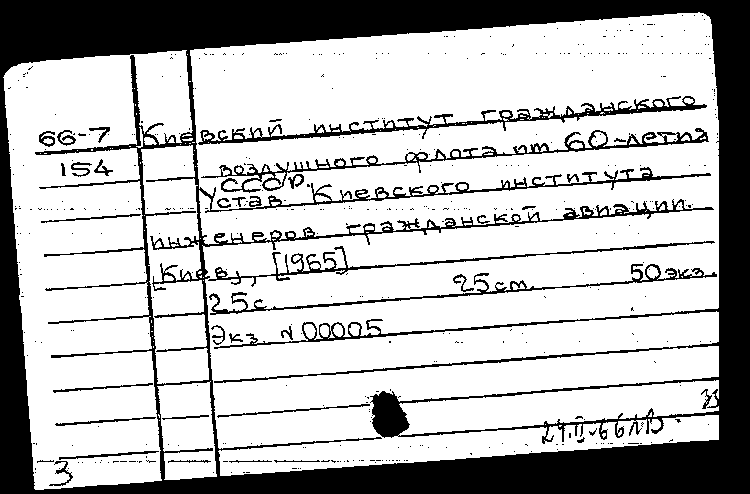 66-7 Киевский институт гражданского
154 воздушного флота им 60-летия
СССР.
Устав Киевского института
инженеров гражданской авиации.
[Киев], [1965]
25с. 25см. 50экз.
Экз. №00005
24.II-66
3